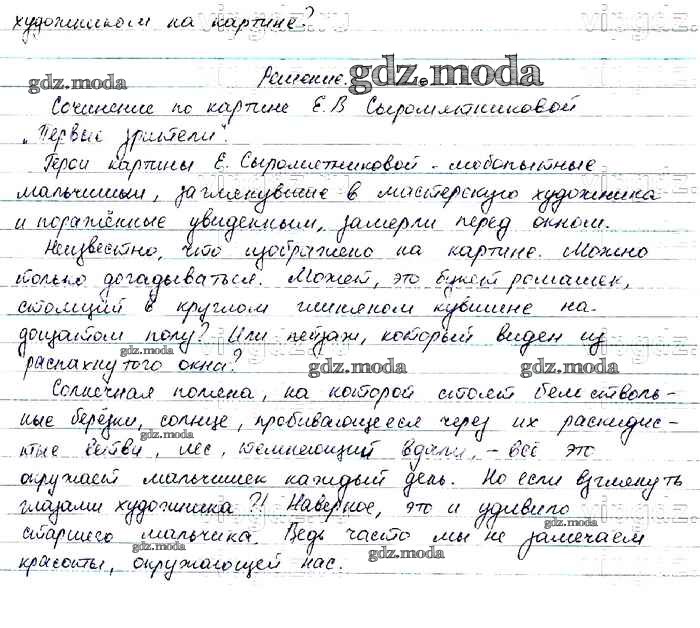 художником на картине?
Решение.
Сочинение по картине Е.В Сыромятниковой
„Первые зрители".
Герои картины Е. Сыромятниковой - любопытные
мальчишки, заглянувшие в мастерскую художника
и поражённые увиденным, замерли перед окном.
Неизвестно, что изображено на картине. Можно
только догадываться. Может, это букет ромашек,
стоящий в круглом глиняном кувшине на
дощатом полу? Или пейзаж, который виден из
распахнутого окна?
Солнечная поляна, на которой стоят белостволь-
ные берёзки, солнце, пробивающееся через их раскидис-
тые ветви, лес, темнеющий вдали, - всё это
окружает мальчишек каждый день. Но если взглянуть
глазами художника?! Наверное, это и удивило
старшего мальчика. Ведь часто мы не замечаем
красоты, окружающей нас.
gdz.moda